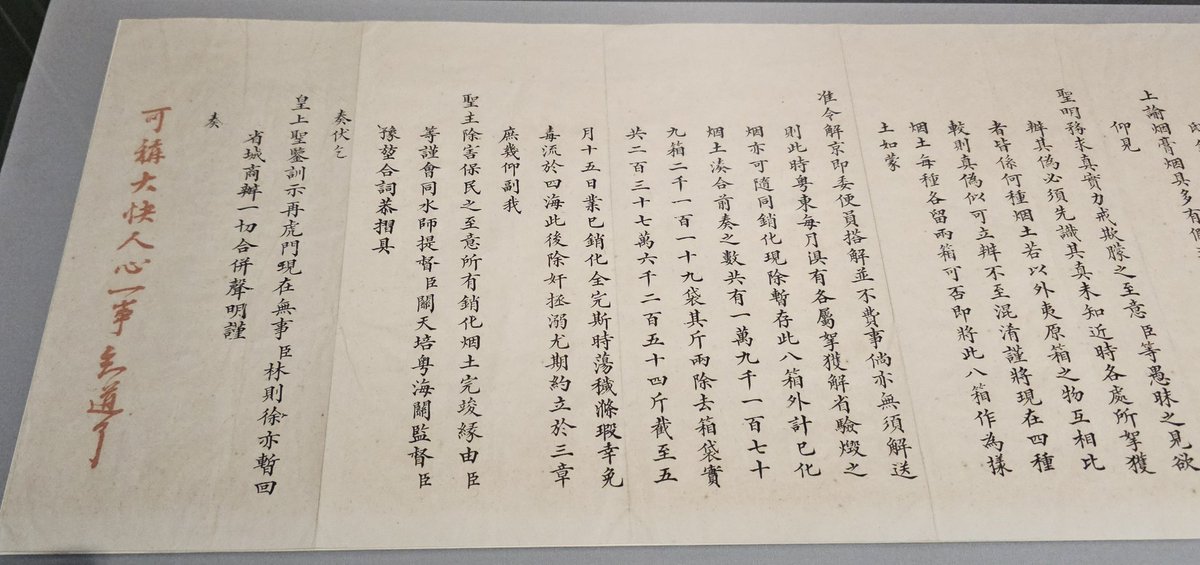 上諭烟膏烟具多有
仰見
聖明務求真實力戒欺朦之至意臣等愚昧之見欲
辨其偽必須先識其真未知近時各處所拏獲
者皆係何種烟土若以外夷原箱之物互相比
較則真偽似可立辨不至混淆謹將現在四種
烟土每種各留兩箱可否即將此八箱作為樣
土如蒙
准令解京即委便員搭解並不費事倘亦無須解送
則此時粤東每月俱有各屬拏獲解省驗燬之
烟亦可隨同銷化現除暫存此八箱外計已化
烟土湊合前奏之數共有一萬九千一百七十
九箱二千一百一十九袋其斤兩除去箱袋實
共二百三十七萬六千二百五十四斤截至五
月十五日業已銷化全完斯時蕩穢滌瑕幸免
毒流於四海此後除奸拯溺尤期約立於三章
庶幾仰副我
聖主除害保民之至意所有銷化烟土完竣緣由臣
等謹會同水師提督臣關天培粤海關監督臣
豫堃合詞恭摺具
奏伏乞
皇上聖鑒訓示再虎門現在無事臣林則徐亦暫回
省城商辦一切合併聲明謹
奏
可稱大快人心一事知道了